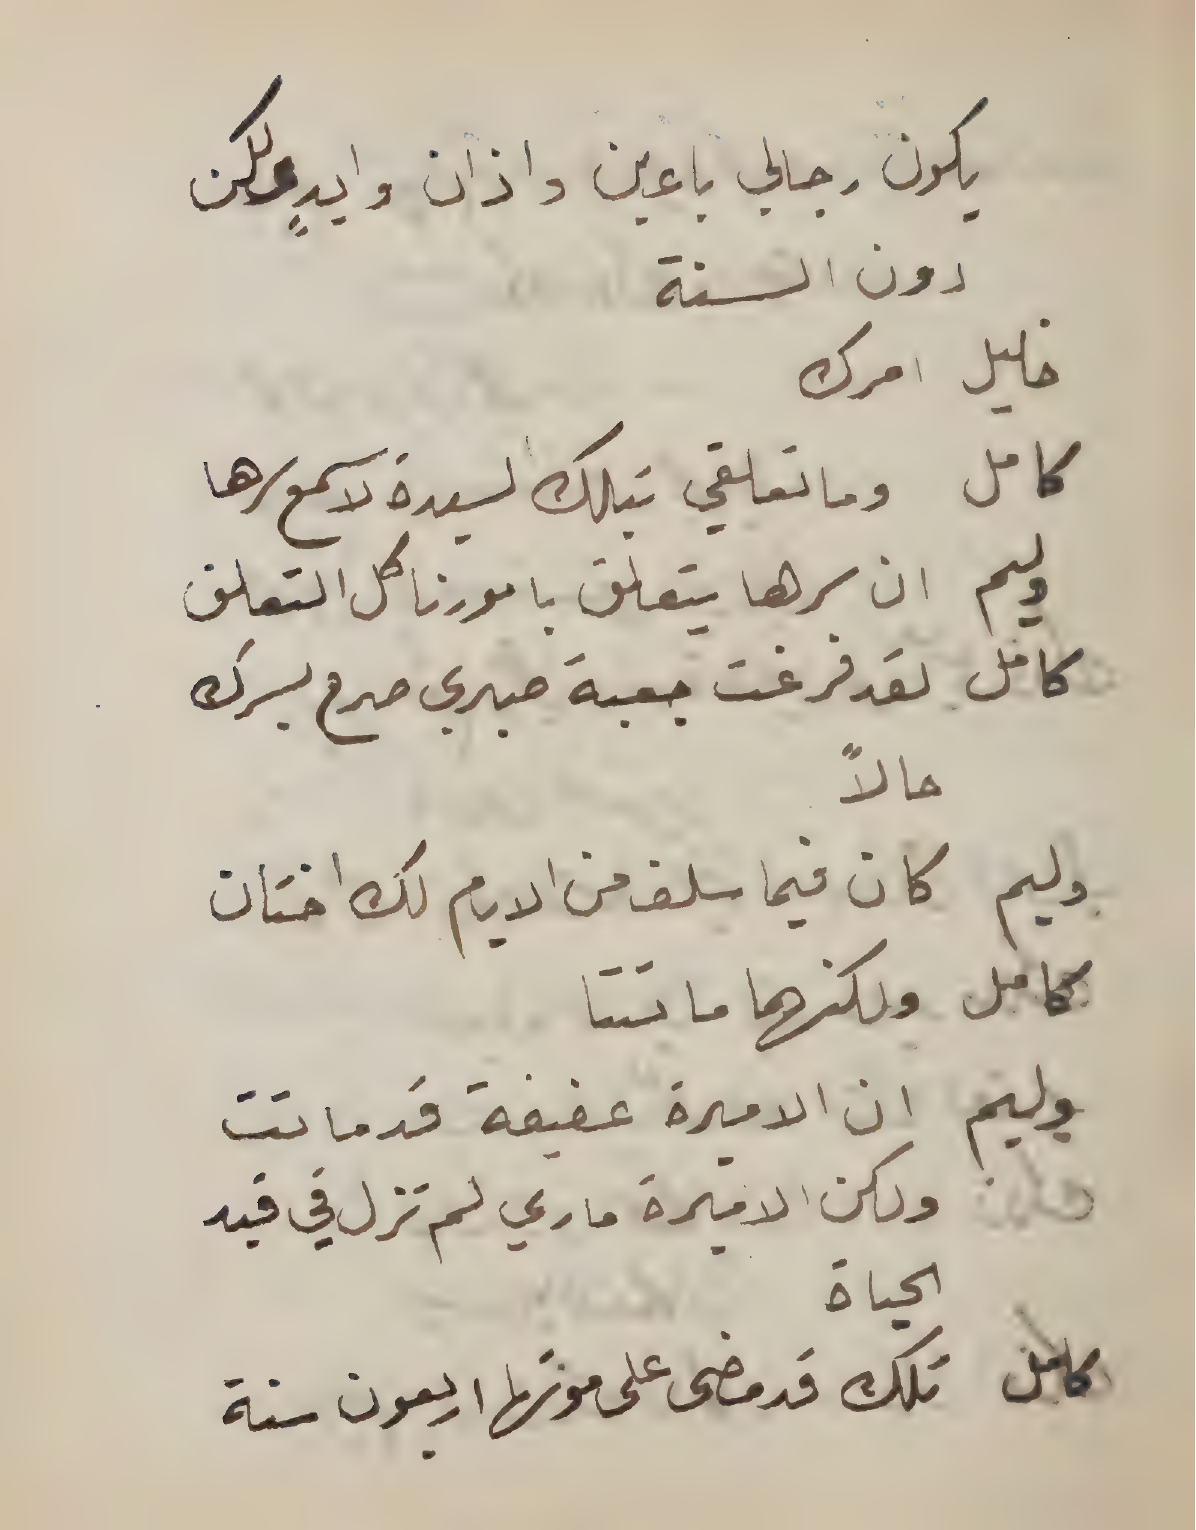 يكون رجالي باعين واذان وايدٍ ولكن
دون السنة
خليل امرك
كامل وما تعلقي بتلك السيدة لاسمع سرها
وليم ان سرها يتعلق بامورنا كل التعلق
كامل لقد فرغت جعبة صبري صرح بسرك
حالاً
وليم كان فيما سلف من الايام لك اختان
كامل ولكنهما ماتتا
وليم ان الاميرة عفيفة قد ماتت
ولكن الاميرة ماري لم تزل في قيد
الحياة
كامل تلك قد مضى على موتها اربعون سنة